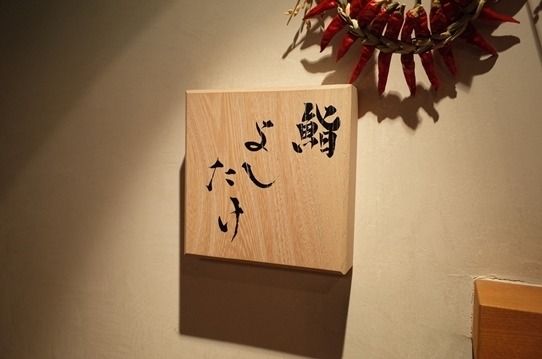 鮨
よし
たけ